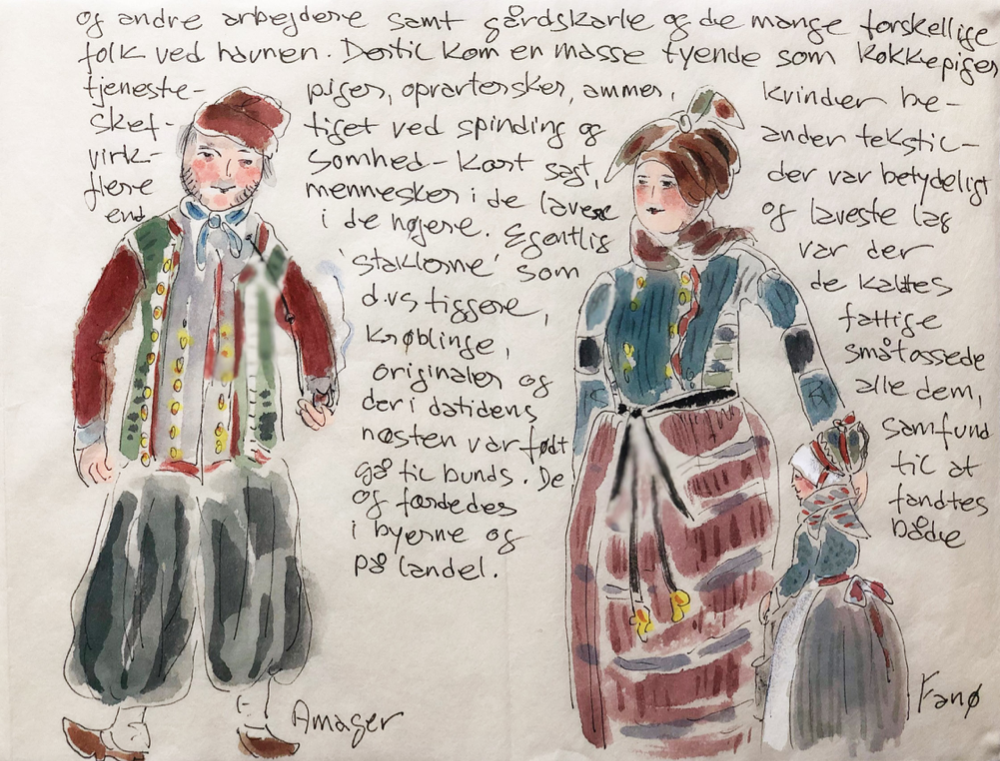 og andre arbejdere samt gårdskarle og de mange forskellige
folk ved havnen. Dertil kom en masse tyende som kokkepiger
tjeneste- piger, opvartersker, ammer, kvinder be-
skef- tiget ved spinding og anden tekstil-
virk- somhed - kort sagt, der var betydeligt
flere mennesker i de lavere og laveste lag
end i de højere. Egentlig var der
'staklerne' som de kaldtes
d.v.s tiggere, fattige
krøblinge, småtossede
originaler og alle dem,
der i datidens samfund
næsten var født til at
gå til bunds. De fandtes
og færdedes både
i byerne og
på landet.
Amager
Fanø